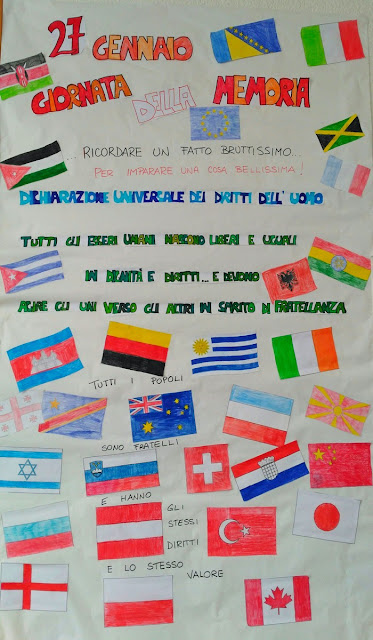 27 GENNAIO
GIORNATA DELLA MEMORIA
... RICORDARE UN FATTO BRUTTISSIMO...
PER IMPARARE UNA COSA BELLISSIMA!
DICHIARAZIONE UNIVERSALE DEI DIRITTI DELL'UOMO
TUTTI GLI ESSERI UMANI NASCONO LIBERI E UGUALI
IN DIGNITÀ E DIRITTI... E DEVONO
AGIRE GLI UNI VERSO GLI ALTRI IN SPIRITO DI FRATELLANZA
TUTTI I POPOLI
SONO FRATELLI
E HANNO
GLI
STESSI
DIRITTI
E LO STESSO
VALORE